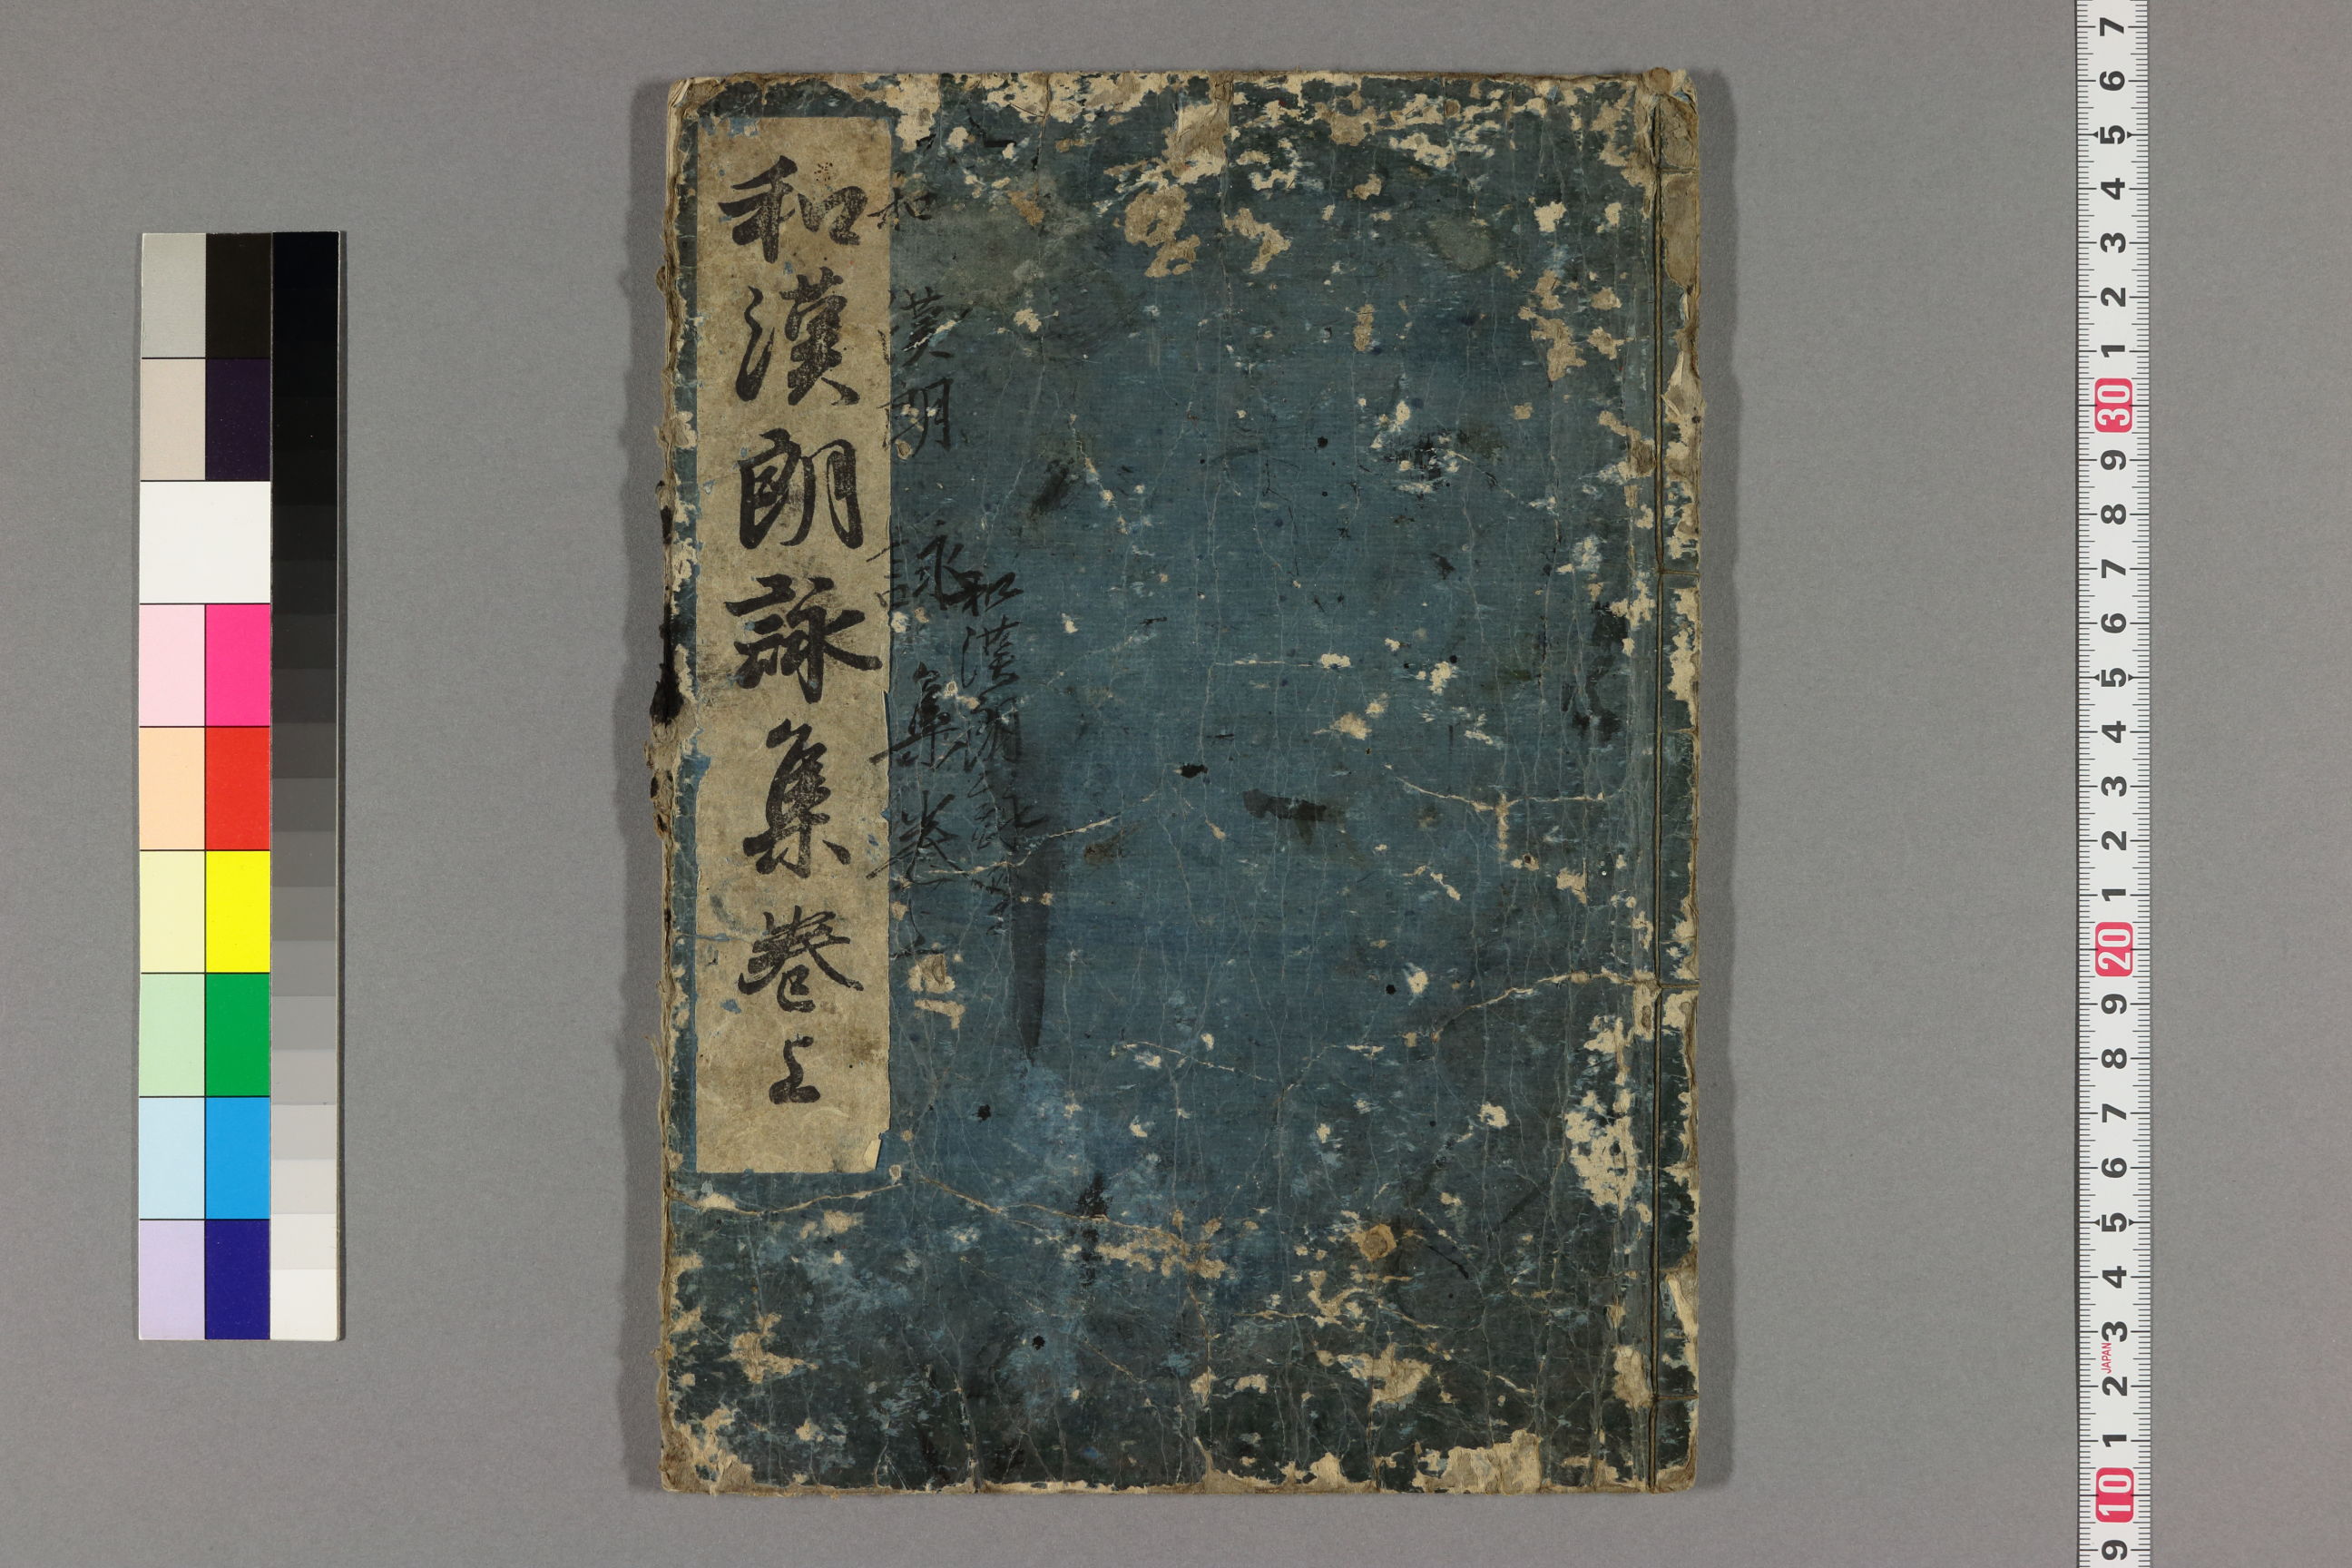 和漢朗詠集巻上
和漢朗詠集巻
和漢朗詠
7 6 5 4 3 2 1 30 9 8 7 6 5 4 3 2 1 20 9 8 7 6 5 4 3 2 1 10 9
JAPAN